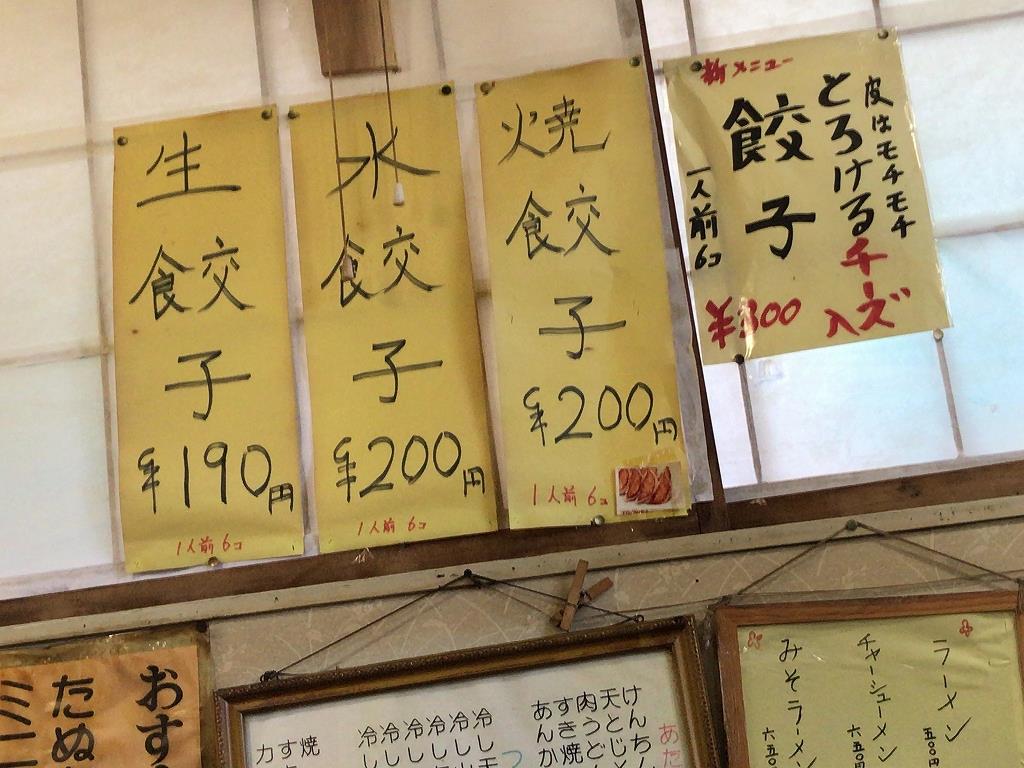 新メニュー
皮はモチモチ
とろけるチーズ入
餃子
一人前6コ
¥300
焼餃子
¥200円
1人前 6コ
水餃子
¥200円
1人前 6コ
生餃子
¥190円
1人前 6コ
ラーメン
五〇〇円
チャーシューメン
みそラーメン
あた
けんちん
天とじ
肉うど
すき焼
あんか
冷し
冷し
冷し
冷し
冷し
冷し
焼
す
カ
おす
たぬ
ミニ